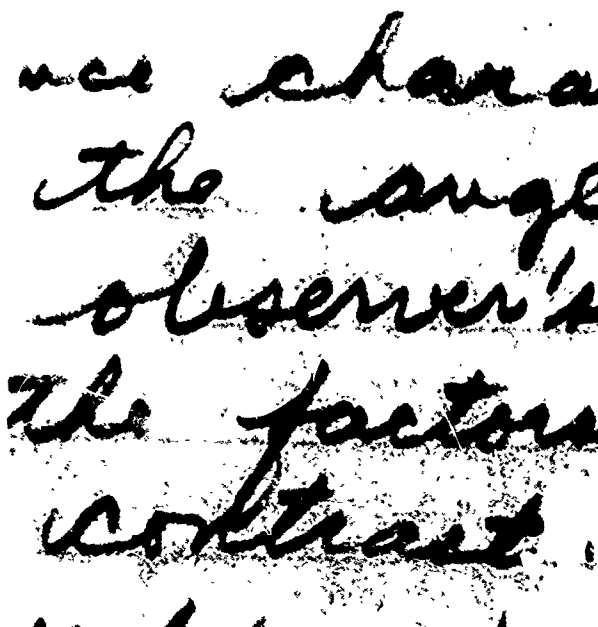 nce chara
the angle
observer's
the factors
contrast